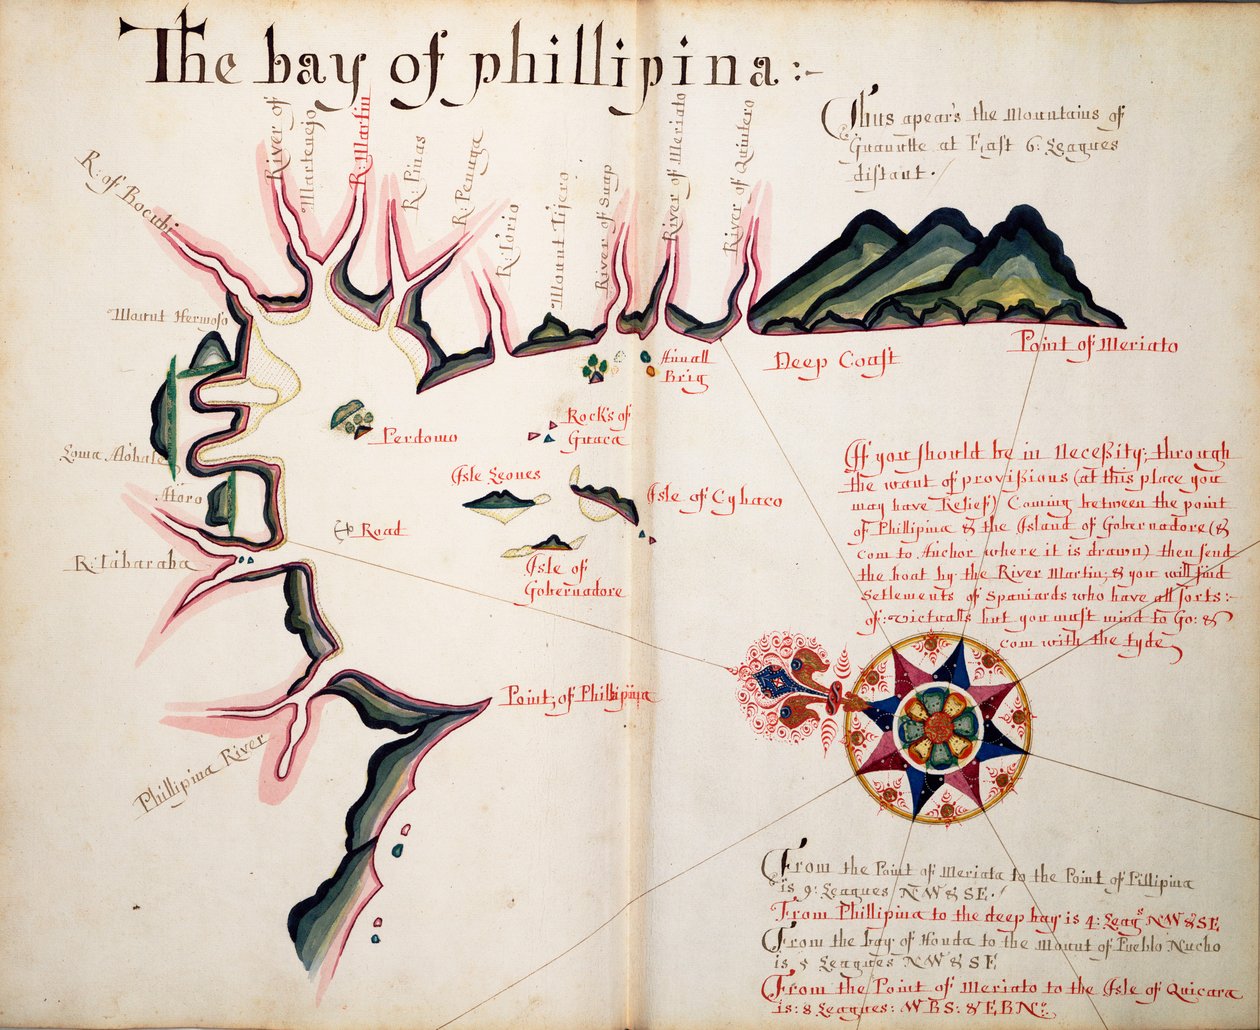 The bay of phillipina:-
Thus apears the Mountains of
Guanutte at East 6: Leagues
distant.
R: of Bocubi
River of
Martenejo
R: Martin
R: Pinas
R: Penuga
R: Torio
Mount Tijero
River of Suap
River of Meriato
River of Quintero
Mount Hermoso
Deep Coast
Point of Meriato
Anvall
Brig
Perdomo
Rocks of
Guaca
Loma
Moro
Isle Leones
Isle of Cybaco
Road
R: Tabaraba
Isle of
Gobernadore
Point, of Phillipina
Phillipina River
If you should be in Necessity: through
the want of provissions (at this place you
may have Relief) Coming between the point
of Phillipina & the Island of Gobernadore (&
com to Anchor where it is drawn) then send
the boat by the River Martin; & you will find
Setlements of Spaniards who have all sorts:-
of: victualls but you must mind to Go: &
com with the tyde
From the Point of Meriata to the Point of Pillipina
is 9: Leagues NW & SE:
From Phillipina to the deep bay is 4: Leags NW & SE
From the bay of Honda to the Mount of Pueblo Nucho
is 5 Leagues NW & SE
From the Point of Meriato to the Isle of Quicara
is: 8 Leagues: WBS: & EBNo: